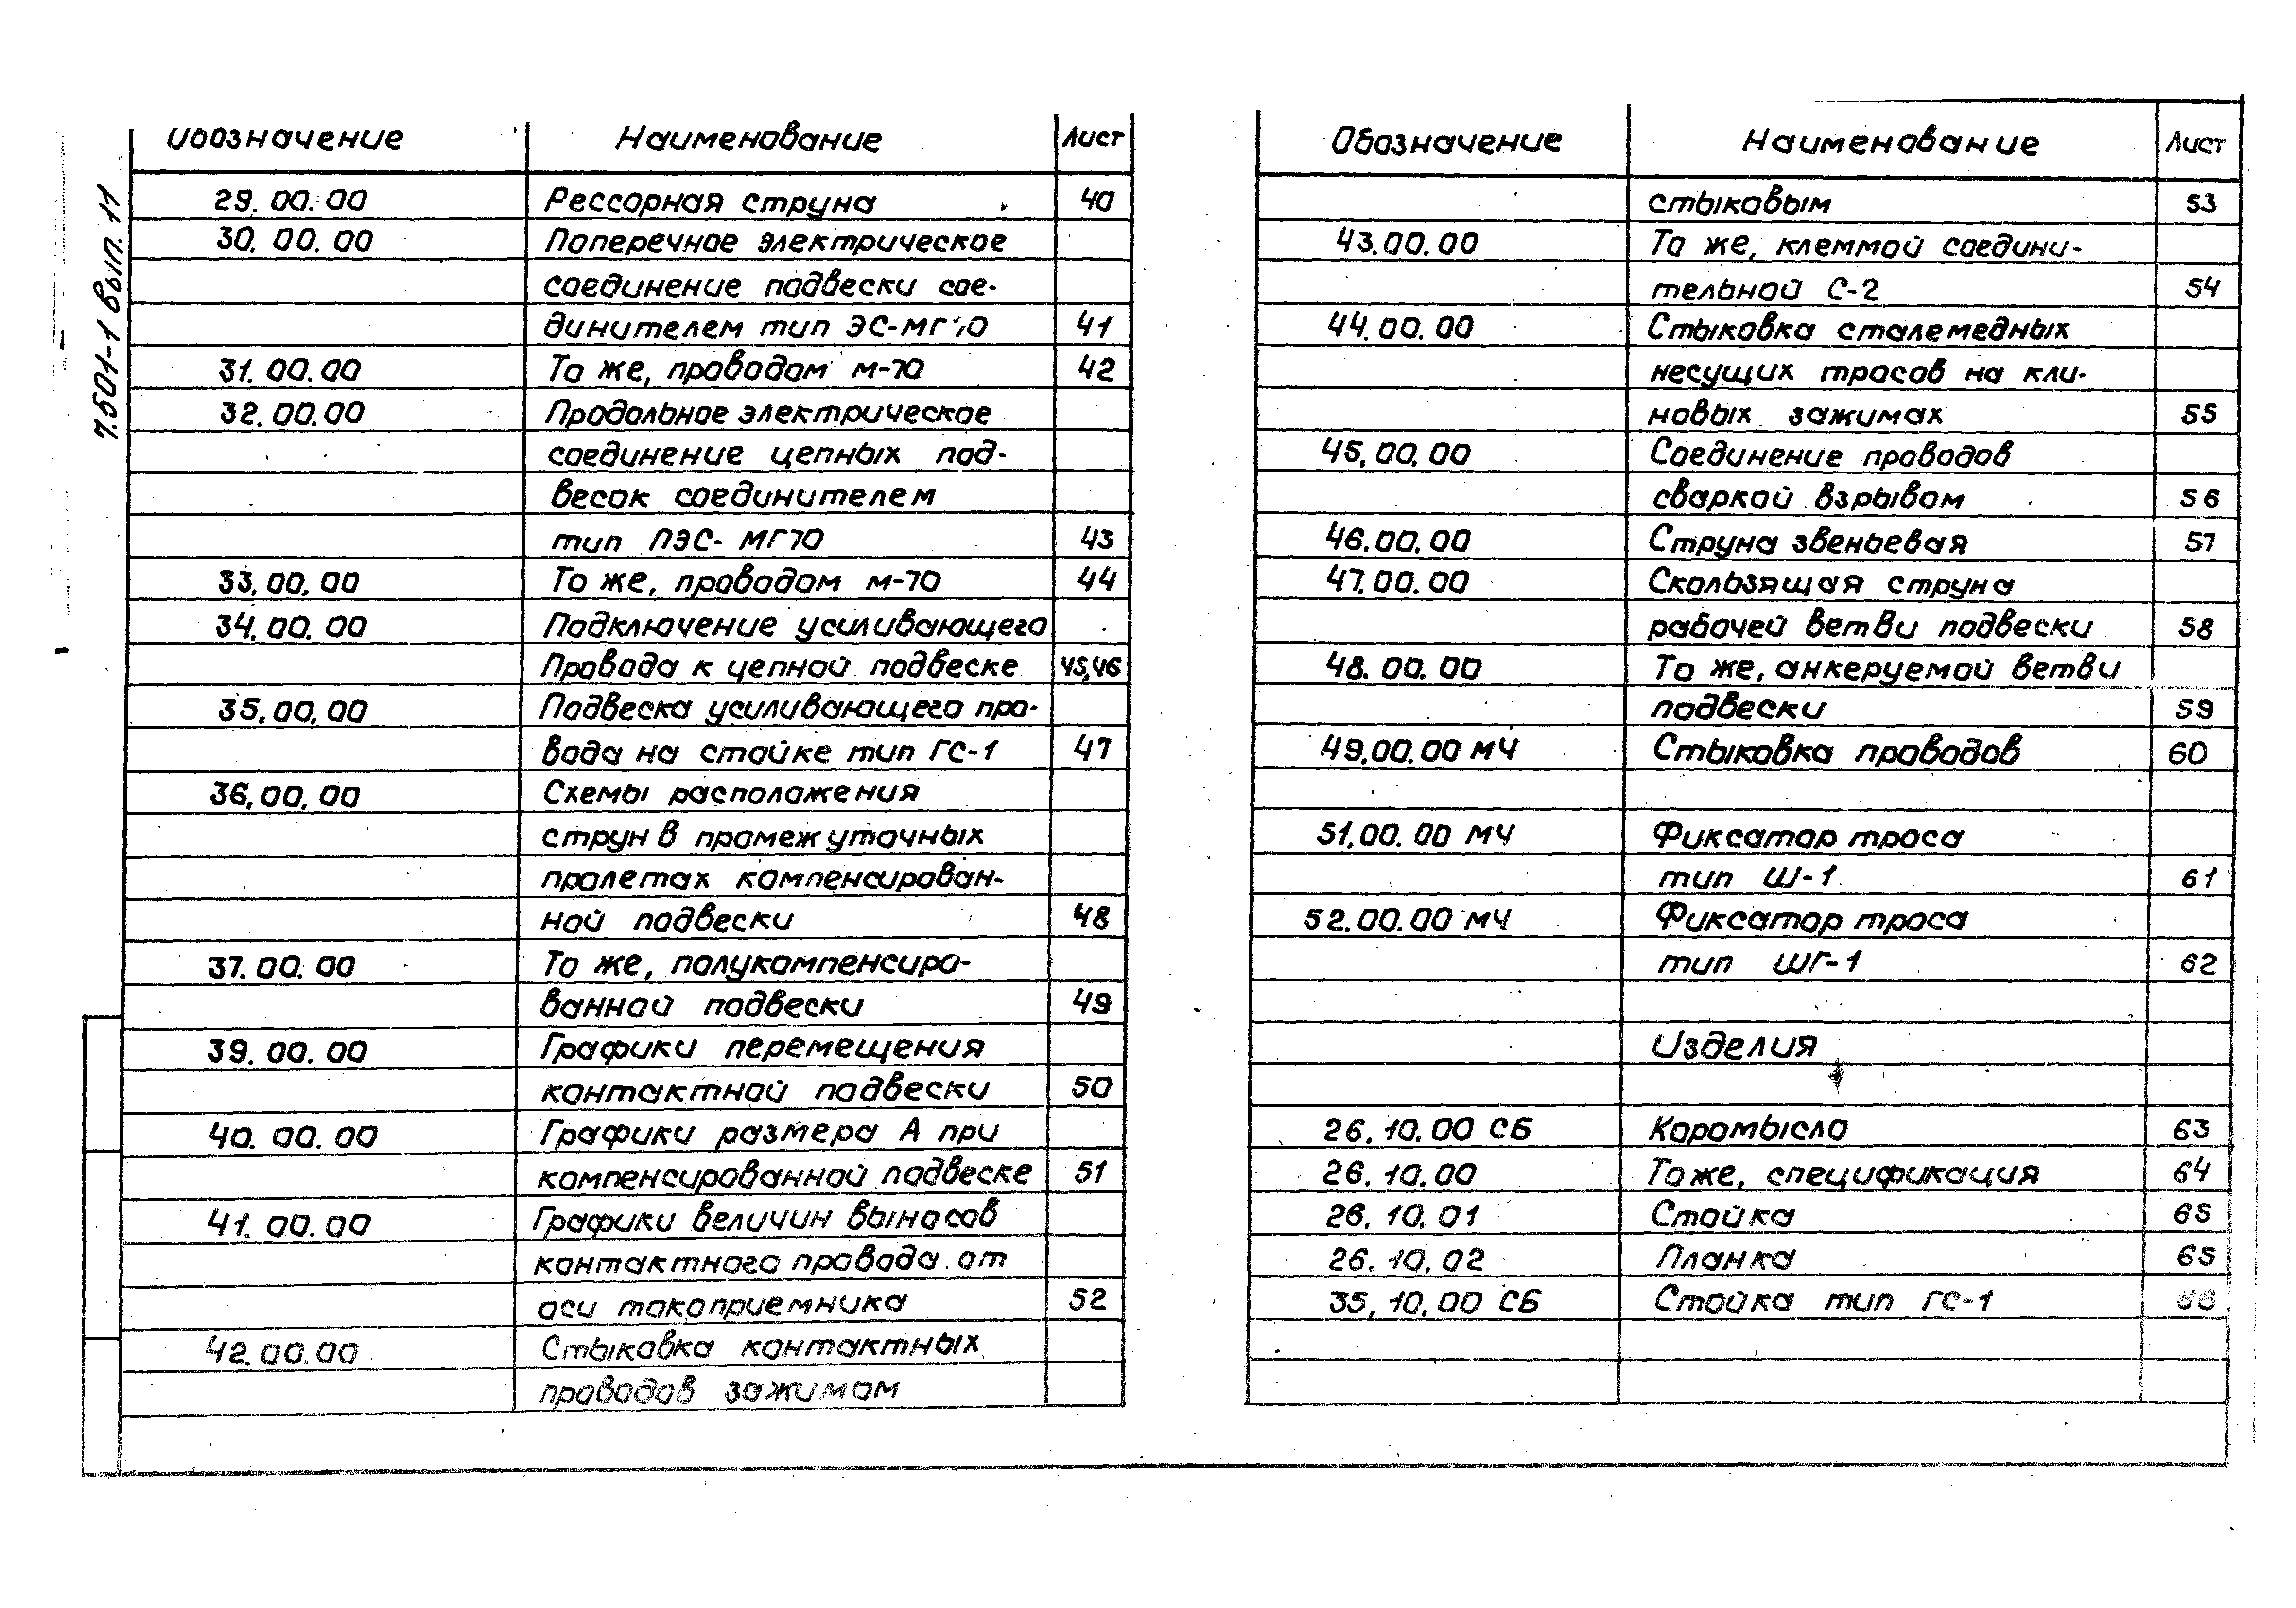 7.501-1 Вып. 11
Обозначение Наименование Лист
29.00.00 Рессорная струна 40
30.00.00 Поперечное электрическое
соединение подвески сое-
динителем тип ЭС-МГ70 41
31.00.00 То же, проводом М-70 42
32.00.00 Продольное электрическое
соединение цепных под-
весок соединителем
тип ПЭС-МГ70 43
33.00.00 То же, проводом М-70 44
34.00.00 Подключение усиливающего
Провода к цепной подвеске 45,46
35.00.00 Подвеска усиливающего про-
вода на стойке тип ГС-1 47
36.00.00 Схемы расположения
струн в промежуточных
пролетах компенсирован-
ной подвески 48
37.00.00 То же, полукомпенсиро-
ванной подвески 49
39.00.00 Графики перемещения
контактной подвески 50
40.00.00 Графики размера А при
компенсированной подвеске 51
41.00.00 Графики величин выносов
контактного провода от
оси токоприемника 52
42.00.00 Стыковка контактных
проводов зажимом
Обозначение Наименование Лист
стыковым 53
43.00.00 То же, клеммой соедини-
тельной С-2 54
44.00.00 Стыковка сталемедных
несущих тросов на кли-
новых зажимах 55
45.00.00 Соединение проводов
сваркой взрывом 56
46.00.00 Струна звеньевая 57
47.00.00 Скользящая струна
рабочей ветви подвески 58
48.00.00 То же, анкеруемой ветви
подвески 59
49.00.00 МЧ Стыковка проводов 60
51.00.00 МЧ Фиксатор троса
тип Ш-1 61
52.00.00 МЧ Фиксатор троса
тип ШГ-1 62
Изделия
26.10.00 СБ Коромысло 63
26.10.00 То же, спецификация 64
26.10.01 Стойка 65
26.10.02 Планка 65
35.10.00 СБ Стойка тип ГС-1